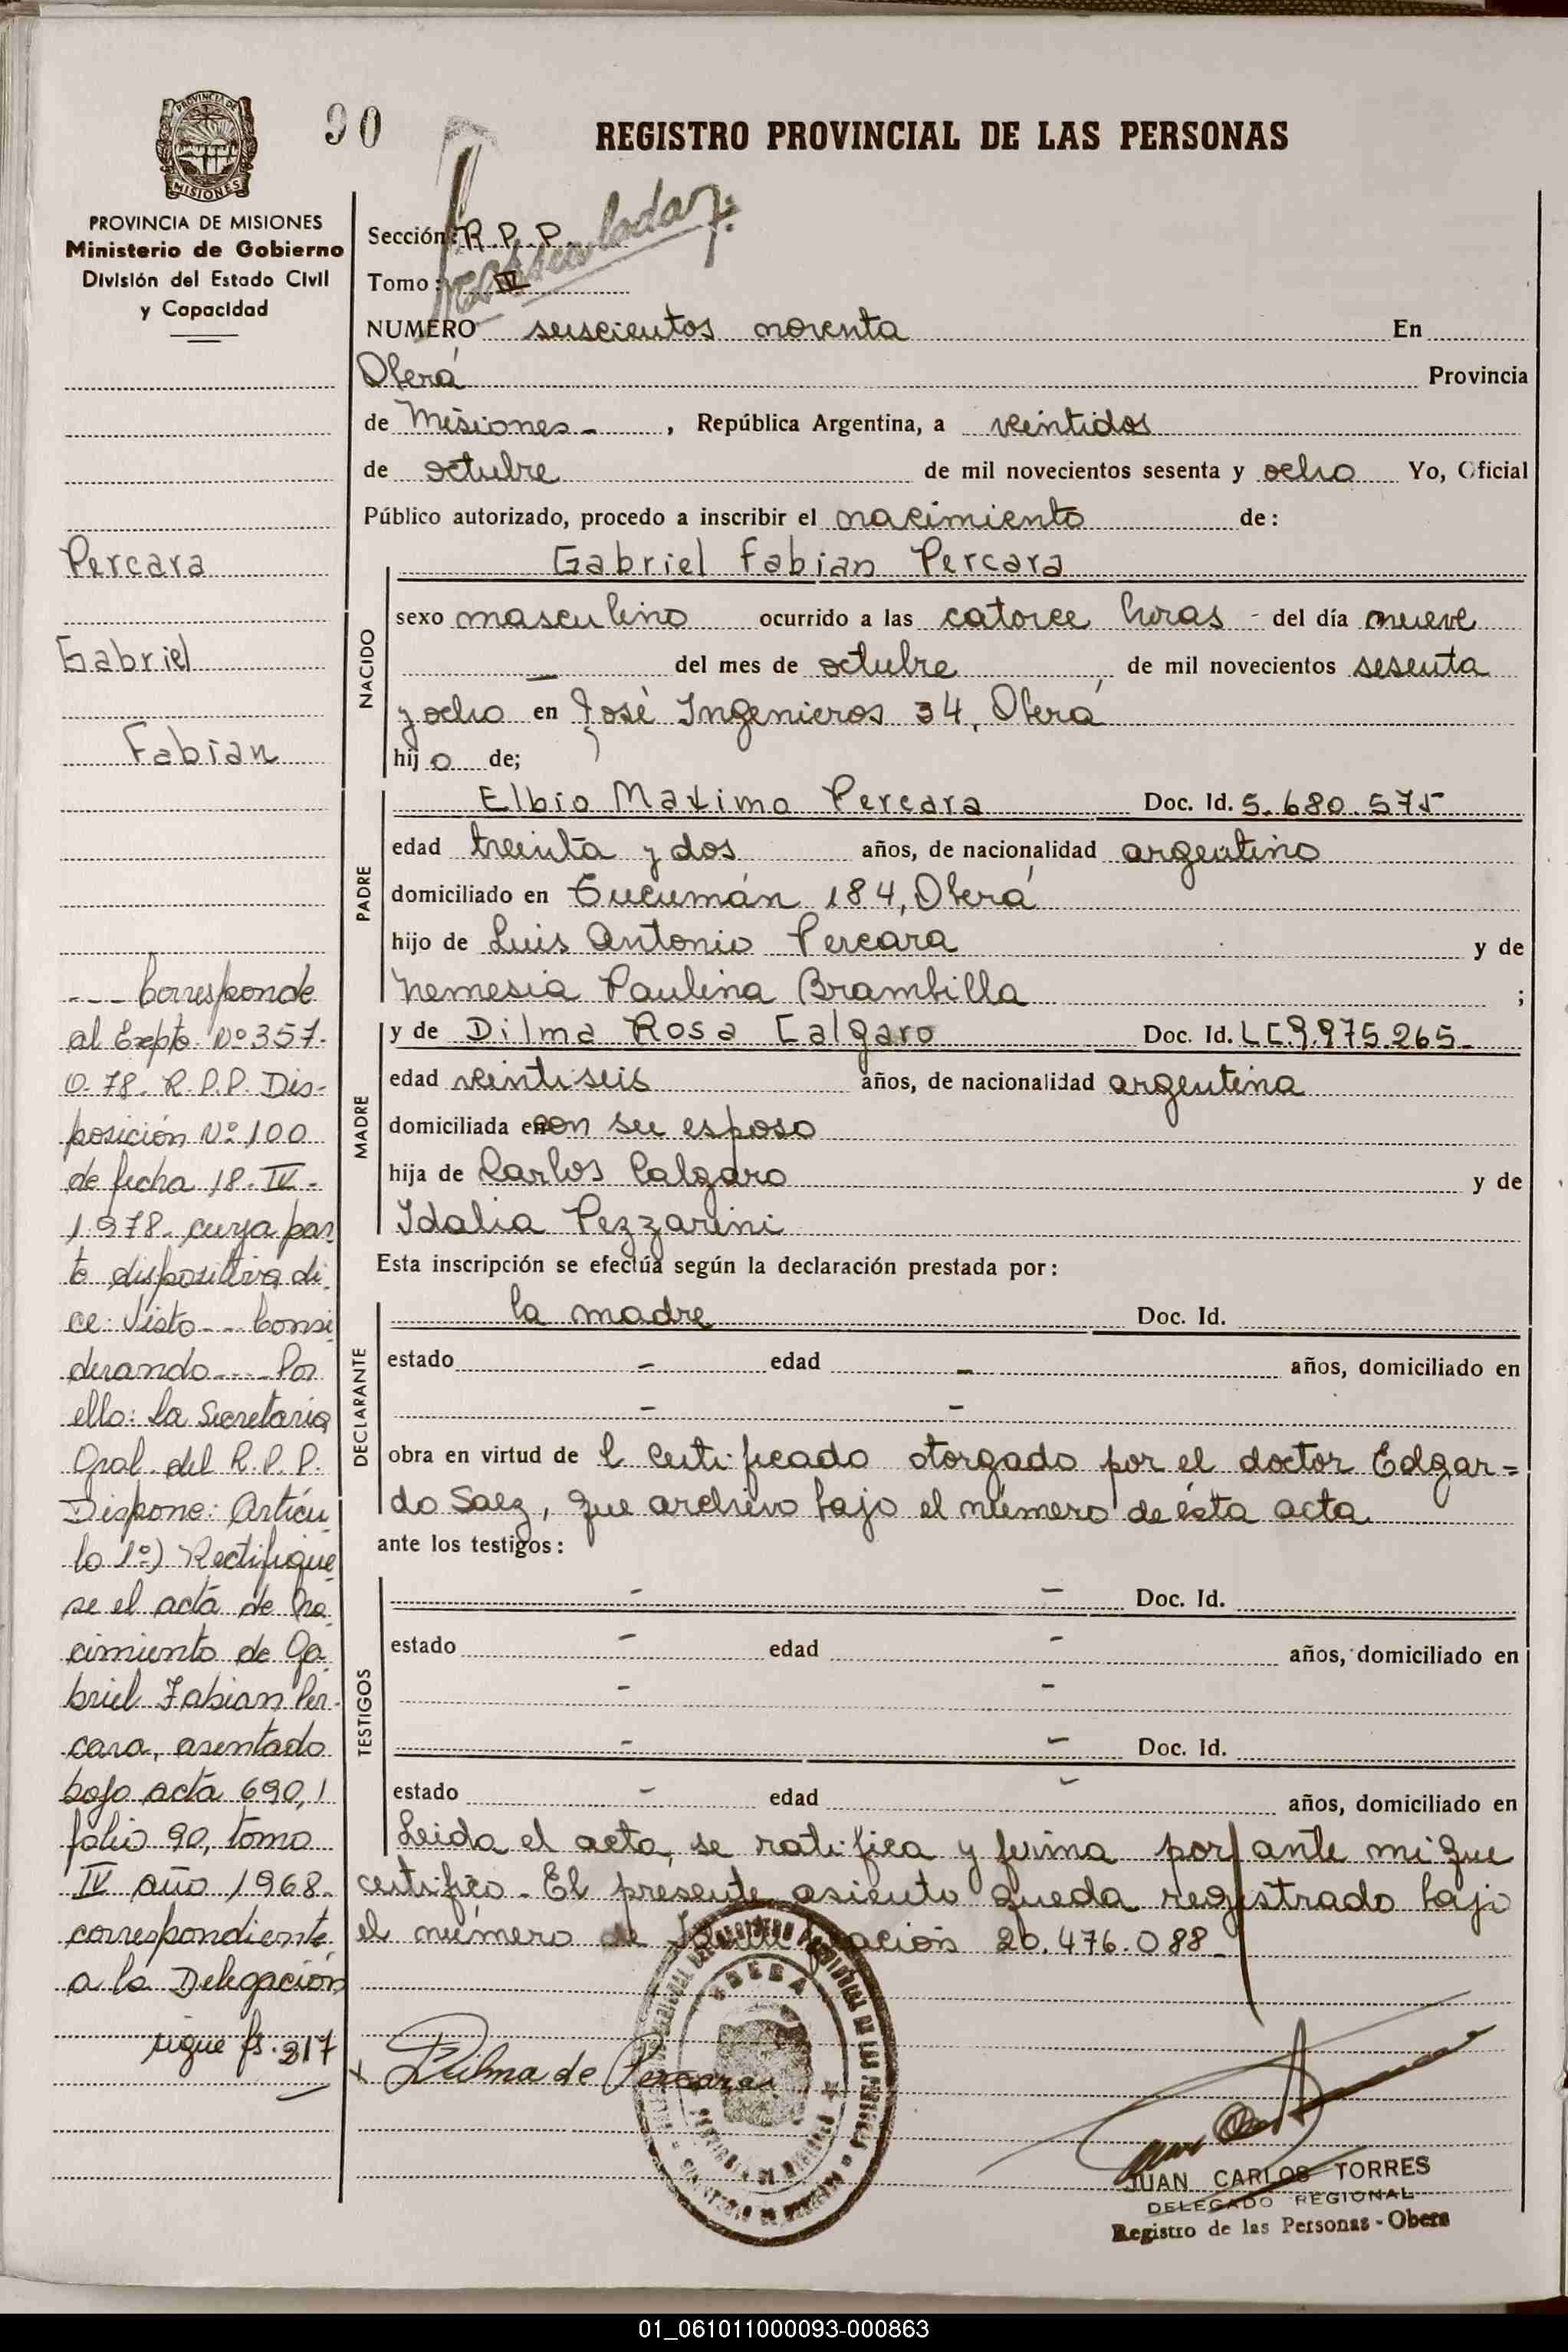 90
REGISTRO PROVINCIAL DE LAS PERSONAS
PROVINCIA DE MISIONES
Ministerio de Gobierno
División del Estado Civil
y Capacidad
Sección: R.P.P.
Tomo: IV
NUMERO seiscientos noventa En
Oberá Provincia
de Misiones - , República Argentina, a veintidos
de octubre de mil novecientos sesenta y ocho Yo, Oficial
Público autorizado, procedo a inscribir el nacimiento de:
Gabriel Fabian Percara
NACIDO
sexo masculino ocurrido a las catorce horas - del día nueve
— del mes de octubre de mil novecientos sesenta
y ocho en José Ingenieros 34, Oberá
hijo de;
PADRE
Elbio Maximo Percara Doc. Id. 5.680.575
edad treinta y dos años, de nacionalidad argentino
domiciliado en Tucumán 184, Oberá
hijo de Luis Antonio Percara y de
Nemesia Paulina Brambilla ;
MADRE
y de Dilma Rosa Calgaro Doc. Id. LC 9.975.265-
edad veintiseis años, de nacionalidad argentina
domiciliada en con su esposo
hija de Carlos Calgaro y de
Idalia Pezzarini
Esta inscripción se efectúa según la declaración prestada por:
DECLARANTE
la madre Doc. Id.
estado - edad - años, domiciliado en
- -
obra en virtud de l certificado otorgado por el doctor Edgar=
do Saez, que archivo bajo el número de ésta acta
ante los testigos:
TESTIGOS
- - Doc. Id.
estado - edad - años, domiciliado en
-  -
- - Doc. Id.
estado - edad - años, domiciliado en
Leida el acta, se ratifica y firma por ante mi que
certifico - El presente asiento queda registrado bajo
el número de 20.476.088-
x Dilma de Percara
JUAN CARLOS TORRES
DELEGADO REGIONAL
Registro de las Personas - Obera
OBERA
Percara
Gabriel
Fabian
--- Corresponde
al Expte. Nº 357-
O-78- R.P.P. Dis-
posición Nº 100
de fecha 18-IV-
1.978- cuya par
te dispositiva di
ce: Visto -- Consi
derando ---- Por
ello: la Secretaria
Gral. del R.P.P.
Dispone: Artícu
lo 1º) Rectifique
se el acta de Na
cimiento de Ga
briel Fabian Per-
cara, asentado
bajo acta 690,
folio 90, tomo
IV año 1968-
correspondiente
a la Delegación
sigue fs. 317
01_061011000093-000863